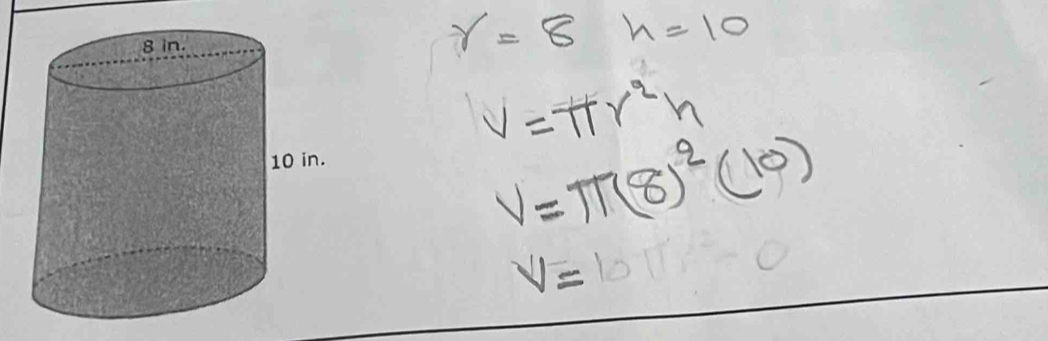 8 in.
10 in.
r = 8 h = 10
V = πr²h
V = π(8)²(10)
V =